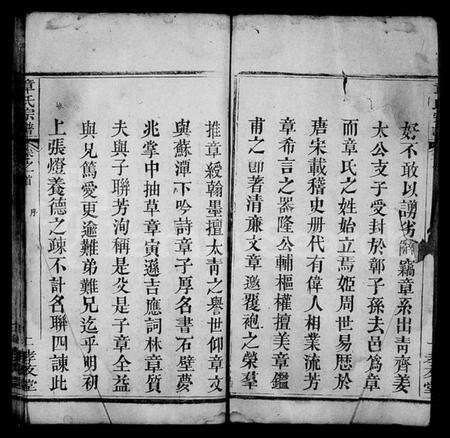 好不敢以謭劣辭竊章系出靑齊姜
太公支子受封於鄣子孫去邑爲章
而章氏之姓始立焉姬周世易歷於
唐宋載稽史册代有偉人相業流芳
章希言之器隆公輔樞權擅美章鑑
甫之卽著清亷文章邀覆袍之榮羣
推章綬翰墨擅太靑之譽世仰章文
與蘇潭下吟詩章子厚名書石壁夢
兆掌中抽草章寅遜吉應詞林章質
夫與子聯芳洵稱是父是子章全益
與兄篤愛更逾難弟難兄迄乎明初
上張燈養德之疎不計名聯四諫此
章氏宗譜
卷之首
序
二
孝友堂